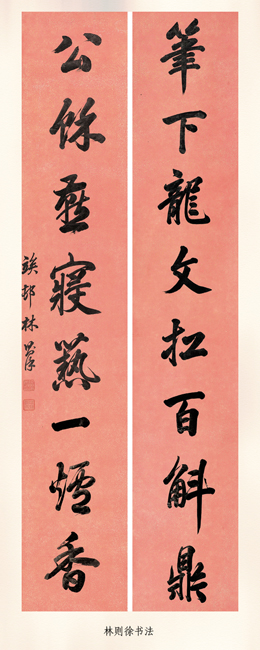 筆下龍文扛百斛鼎
公餘燕寢爇一爐香
竢邨林則徐
林则徐书法